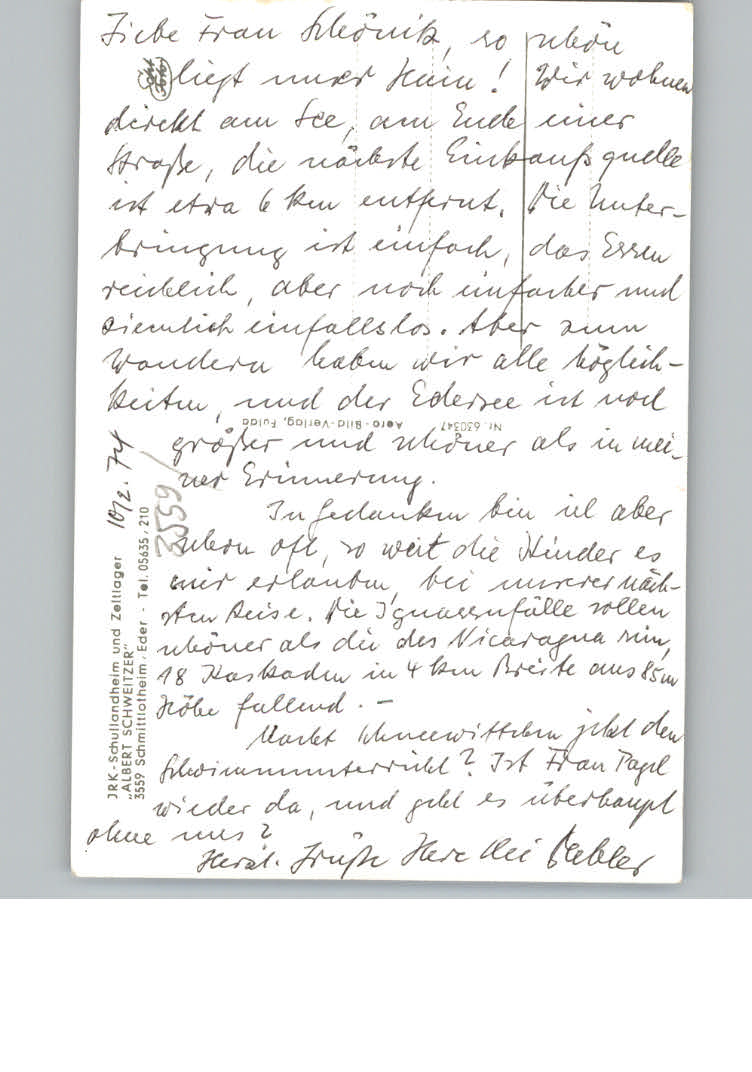 Liebe Frau Schönik, so schön
liegt unser Heim! Wir wohnen
direkt am See, am Ende einer
Straße, die nächste Einkaufsquelle
ist etwa 6 km entfernt. Die Unter-
bringung ist einfach, das Essen
reichlich, aber noch einfacher und
ziemlich einfallslos. Aber zum
Wandern haben wir alle Möglich-
keiten, und der Edersee ist noch
größer und schöner als in mei-
ner Erinnerung.
In Gedanken bin ich aber
schon oft, so weit die Kinder es
mir erlauben, bei unserer näch-
sten Reise. Die Iguassufälle sollen
schöner als die des Niagara sein,
18 Kaskaden in 4 km Breite aus 85m
Höhe fallend. -
Macht Schneewittchen jetzt den
Schwimmunterricht? Ist Frau Pagel
wieder da, und geht es überhaupt
ohne uns?
Herzl. Grüße Ihre
Nr. 630347 Aero-Bild-Verlag, Fulda
JRK-Schullandheim und Zeltlager
„ALBERT SCHWEITZER"
3559 Schmittlotheim/Eder - Tel. 05635/210
10/2. 74
3559/